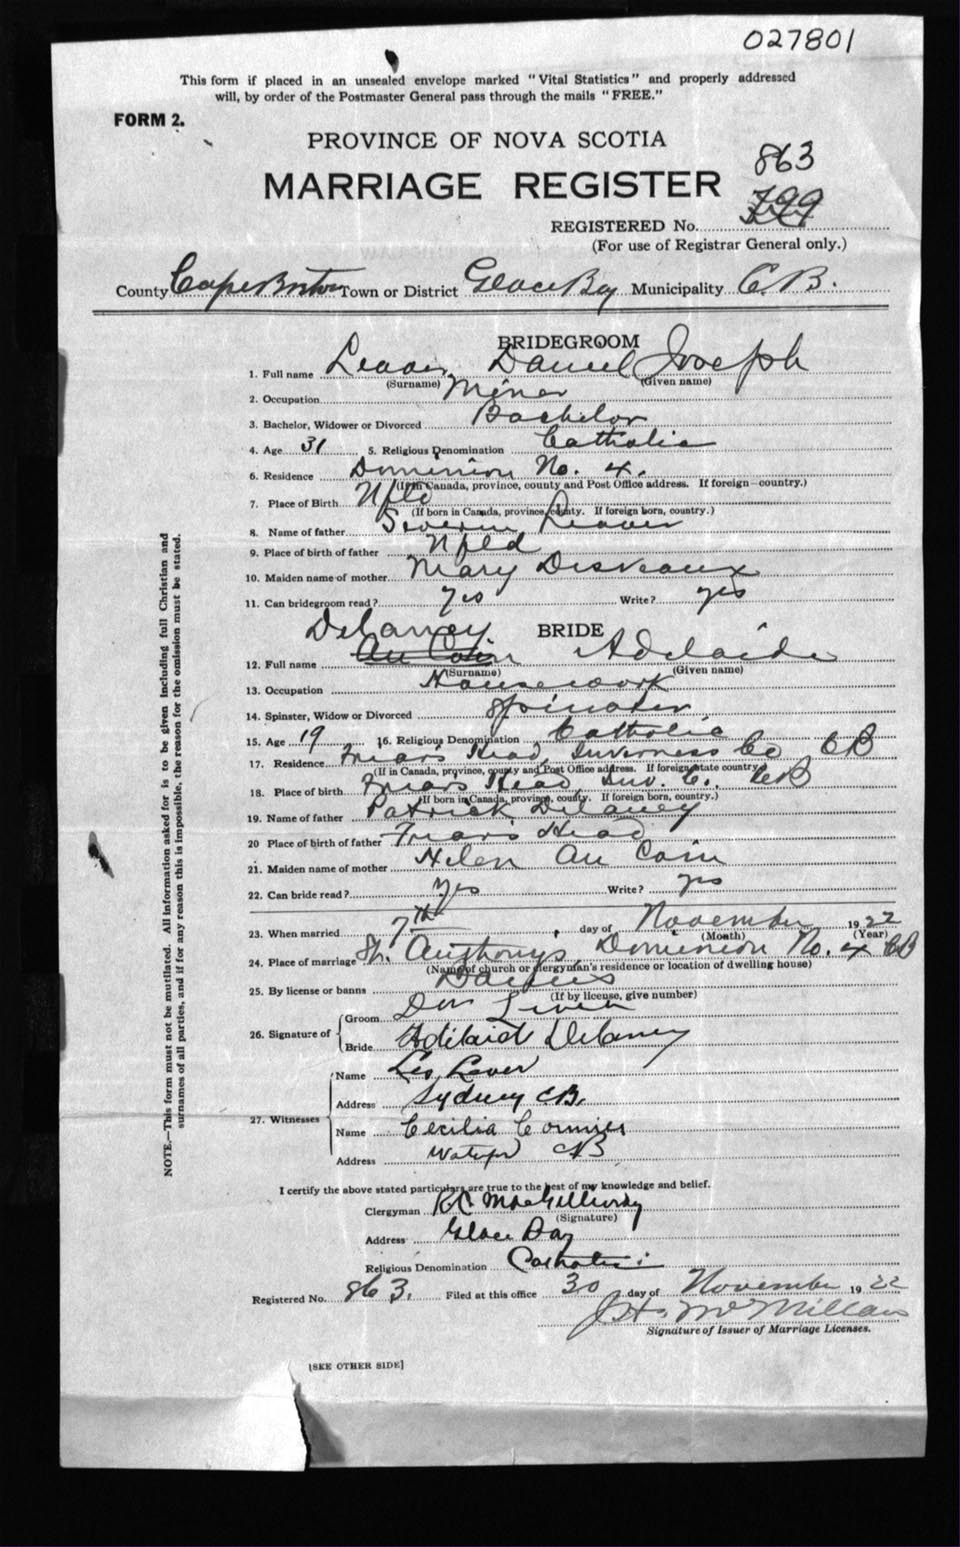 027801
This form if placed in an unsealed envelope marked "Vital Statistics" and properly addressed
will, by order of the Postmaster General pass through the mails "FREE."
FORM 2.
PROVINCE OF NOVA SCOTIA
863
MARRIAGE REGISTER
799
REGISTERED No.
(For use of Registrar General only.)
County Cape Breton Town or District Glace Bay Municipality C.B.
BRIDEGROOM
1. Full name Leaver Daniel Joseph
(Surname) (Given name)
2. Occupation Miner
3. Bachelor, Widower or Divorced Bachelor
4. Age 31 5. Religious Denomination Catholic
6. Residence Dominion No. 4.
(If in Canada, province, county and Post Office address. If foreign—country.)
7. Place of Birth Nfld
(If born in Canada, province, county. If foreign born, country.)
8. Name of father Severin Leaver
9. Place of birth of father Nfld
10. Maiden name of mother Mary Desveaux
11. Can bridegroom read? yes Write? yes
BRIDE
Delaney
12. Full name Au Coin Adelaide
(Surname) (Given name)
13. Occupation Housework
14. Spinster, Widow or Divorced Spinster
15. Age 19 16. Religious Denomination Catholic
17. Residence Friars Head, Inverness Co CB
(If in Canada, province, county and Post Office address. If foreign state country.)
18. Place of birth Friars Head Inv. C. CB
(If born in Canada, province, county. If foreign born, country.)
19. Name of father Patrick Delaney
20 Place of birth of father Friars Head
21. Maiden name of mother Helen Au Coin
22. Can bride read? yes Write? yes
23. When married 7th day of November 1922
(Month) (Year)
24. Place of marriage St. Anthonys, Dominion No. 4 CB
(Name of church or clergyman's residence or location of dwelling house)
25. By license or banns
(If by license, give number)
26. Signature of
Groom Dan
Bride Adelaide Delaney
27. Witnesses
Name Leo Laver
Address Sydney CB.
Name Cecilia Cormier
Address Waterford CB
I certify the above stated particulars are true to the best of my knowledge and belief.
Clergyman R.C. MacGillivray
(Signature)
Address Glace Bay
Religious Denomination Catholic
Registered No. 863. Filed at this office 30 day of November 1922
J.H. McMillan
Signature of Issuer of Marriage Licenses.
[SEE OTHER SIDE]
NOTE.—This form must not be mutilated. All information asked for is to be given including full Christian and
surnames of all parties, and if for any reason this is impossible, the reason for the omission must be stated.